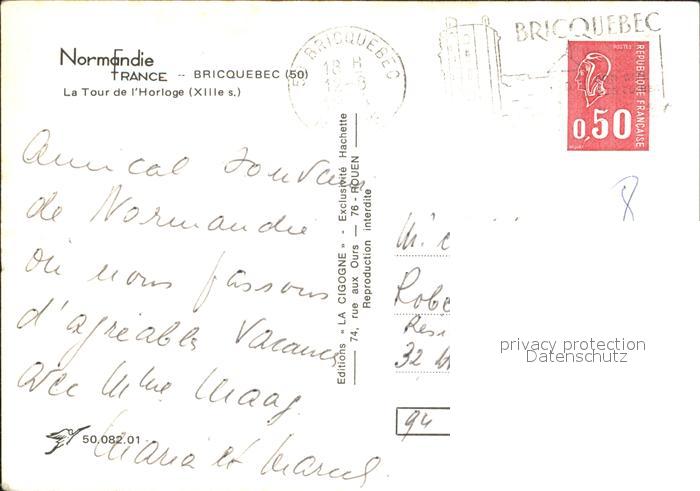 Normandie
FRANCE -- BRICQUEBEC (50)
La Tour de l'Horloge (XIIIe s.)
BRICQUEBEC
18 H
BRICQUEBEC
POSTES
REPUBLIQUE FRANÇAISE
0,50
Amical souvenir
de Normandie
où nous passons
d'agréables vacances
avec Mme Maag
Maria et Marcel
50.082.01
Editions « LA CIGOGNE » - Exclusivité Hachette
74, rue aux Ours — 76 - ROUEN
Reproduction interdite
Robe
Rési
32
94
privacy protection
Datenschutz